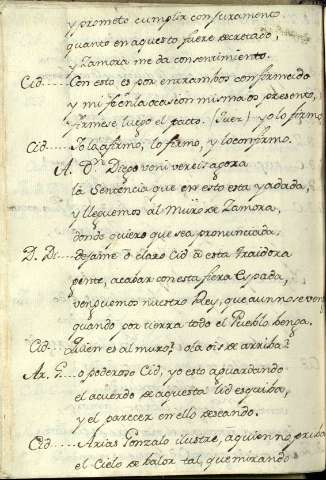 y prometo cumplir con juramento
quanto en aquesto fuere decretado,
y Zamora me da consentimiento.
Cid..... Con esto es por entrambos conformedo
y mi fe en la ocasion misma os presento,
y firmese luego el pacto. (Juez) yo lo fo
Cid..... Yo la afirmo, lo firmo, y lo conformo.
A. Dn. Diego veni vereis agora
la Sentencia que en esto esta ya dada,
y lleguemos al Muro de Zamora,
donde quiero que sea pronunciada.
D. D..... dejame o claro Cid a esta traidora
gente, acabar con esta fiera Espada,
venguemos nuestro Rey, que aun no se ven
quando por tierra todo el Pueblo benga.
Cid... Quien es al muro? ola ois de arriba?
Ar. G... o poderoso Cid, yo estoy aguardando
el acuerdo de aquesta lid esquiba,
y el parecer en ello deseando.
Cid.... Arias Gonzalo ilustre, a quien no priba
el Cielo de balor tal, que mirando